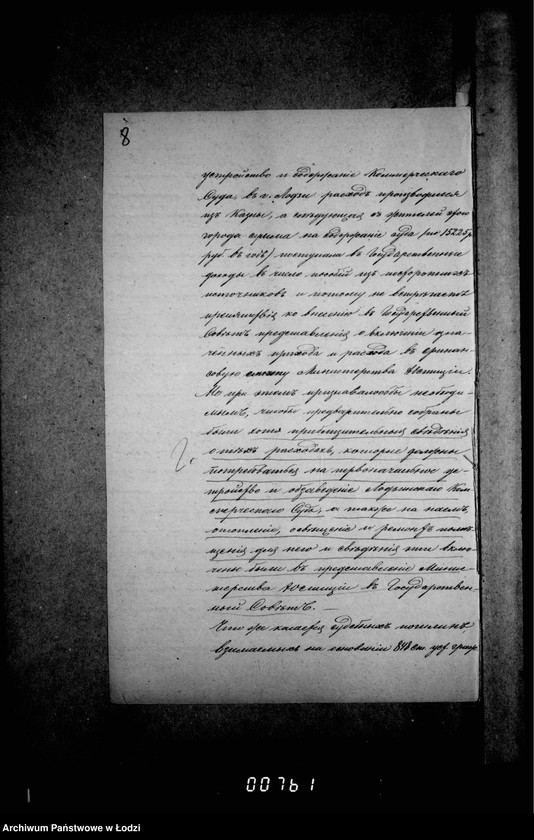 8
устройство и содержаніе Коммерческаго
Суда въ г. Лодзи расходъ производился
изъ Казны, а слѣдующая съ жителей этого
города сумма на содержаніе суда (по 15225
руб. въ годъ) поступала въ Государственные
доходы въ число пособій изъ постороннихъ
источниковъ и потому не встрѣчаетъ
препятствія ко внесенію въ Государственный
Совѣтъ представленія о включеніи озна-
ченныхъ прихода и расхода въ финан-
совую смѣту Министерства Юстиціи.
Но при этомъ признавалось бы необходи-
мымъ, чтобы предварительно собраны
были хотя приблизительныя свѣдѣнія
о тѣхъ расходахъ, которые должны
потребоваться на первоначальное ус-
тройство и обзаведеніе Лодзинскаго Ком-
мерческаго Суда, а также на наемъ,
отопленіе, освѣщеніе и ремонтъ помѣ-
щенія для него и свѣдѣнія эти вклю-
чены были въ представленіе Мини-
стерства Юстиціи въ Государствен-
ный Совѣтъ. —
Что же касается судебныхъ пошлинъ,
взимаемыхъ на основаніи 848 ст. уст. гражд.
00761
Archiwum Państwowe w Łodzi